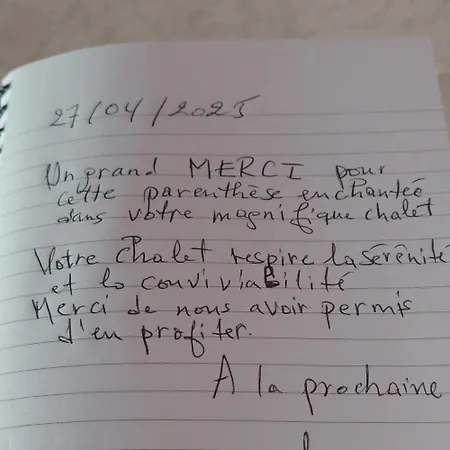 27/04/2025
Un grand MERCI pour
cette parenthèse enchantée
dans votre magnifique chalet
Votre Chalet respire la sérénité
et la conviviabilité
Merci de nous avoir permis
d'en profiter.
A la prochaine